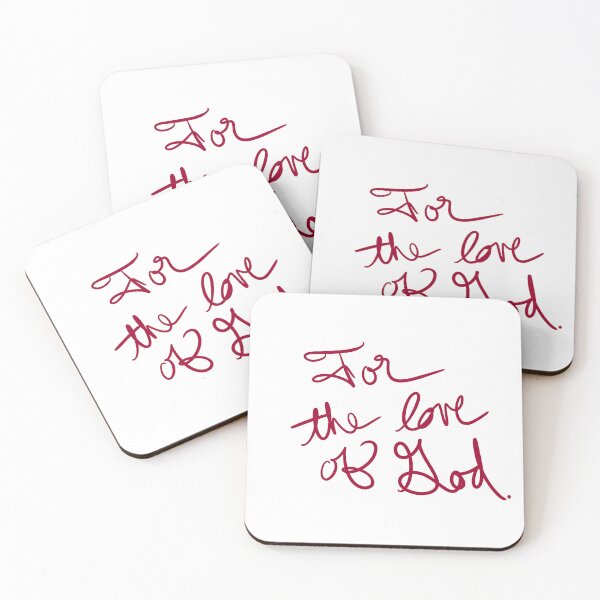 For
the love
For
the love
of God.
For
the love
of God
For
the love
of God.